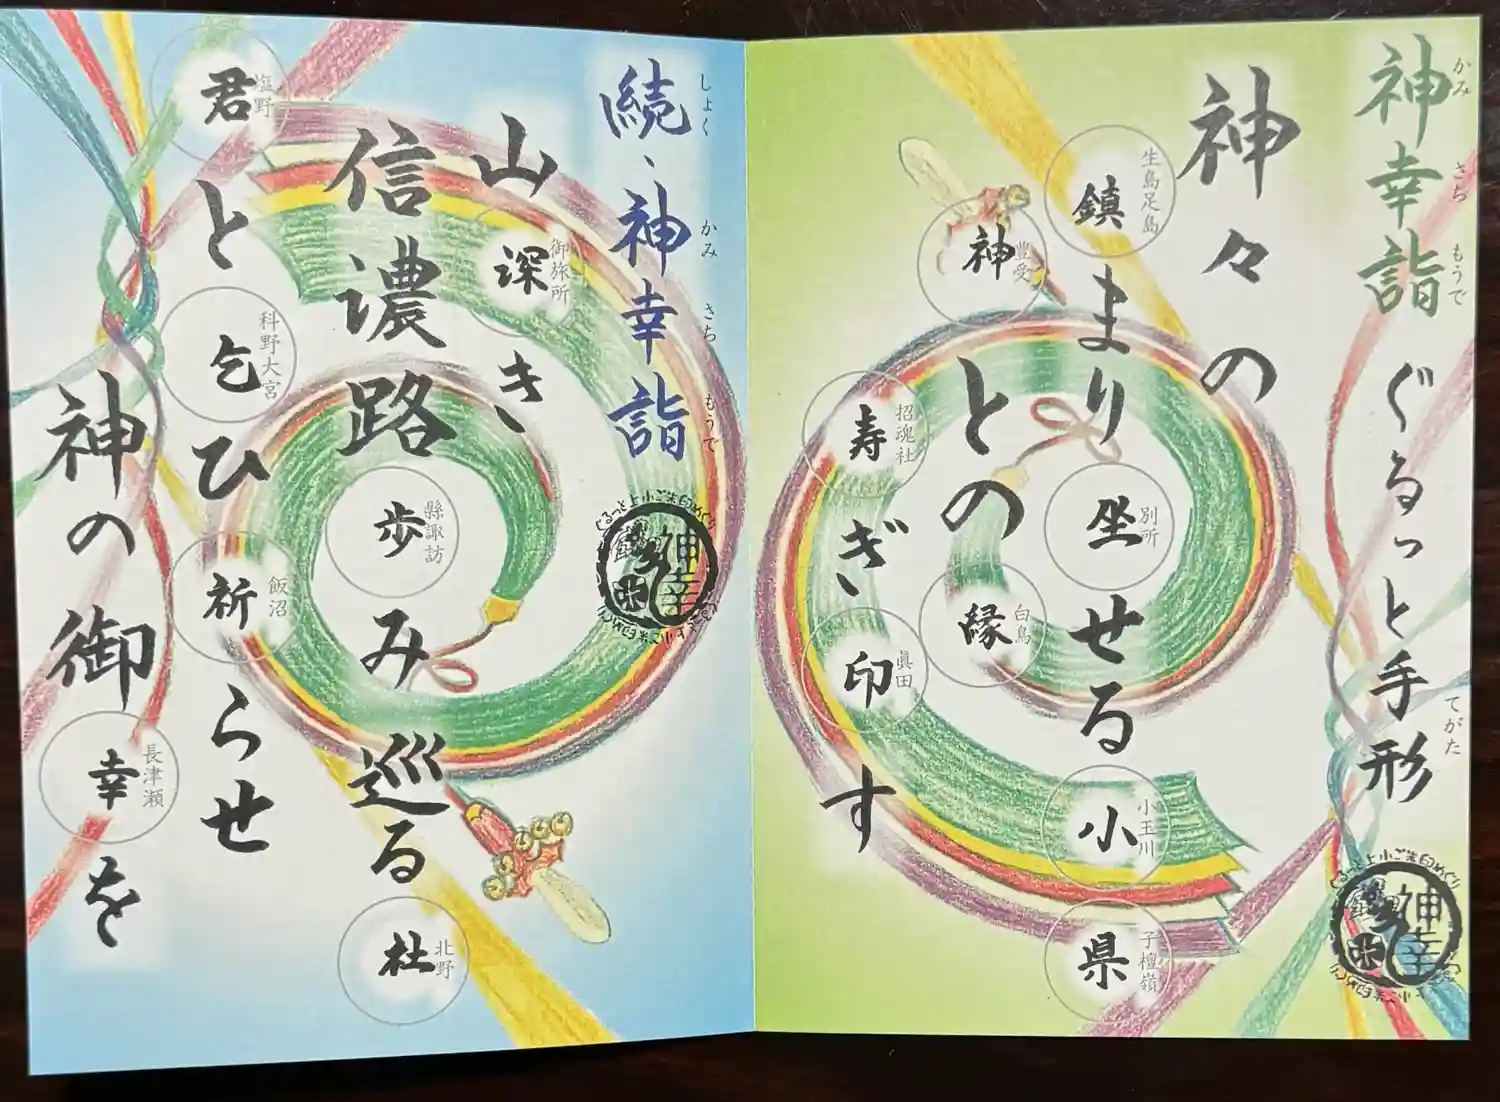 神幸詣 ぐるっと手形
かみ さち もうで てがた
神々の
鎮まり坐せる小県
生島足島
別所
小玉川
子檀嶺
神との縁
豊受
白鳥
寿ぎ印す
招魂社
眞田
ぐるっと上小ご朱印めぐり
神幸
続、神幸詣
しょく かみ さち もうで
山深き
御旅所
信濃路歩み巡る杜
縣諏訪
北野
君と乞ひ祈らせ
塩野
科野大宮
飯沼
神の御幸を
長津瀬
ぐるっと上小ご朱印めぐり
神幸